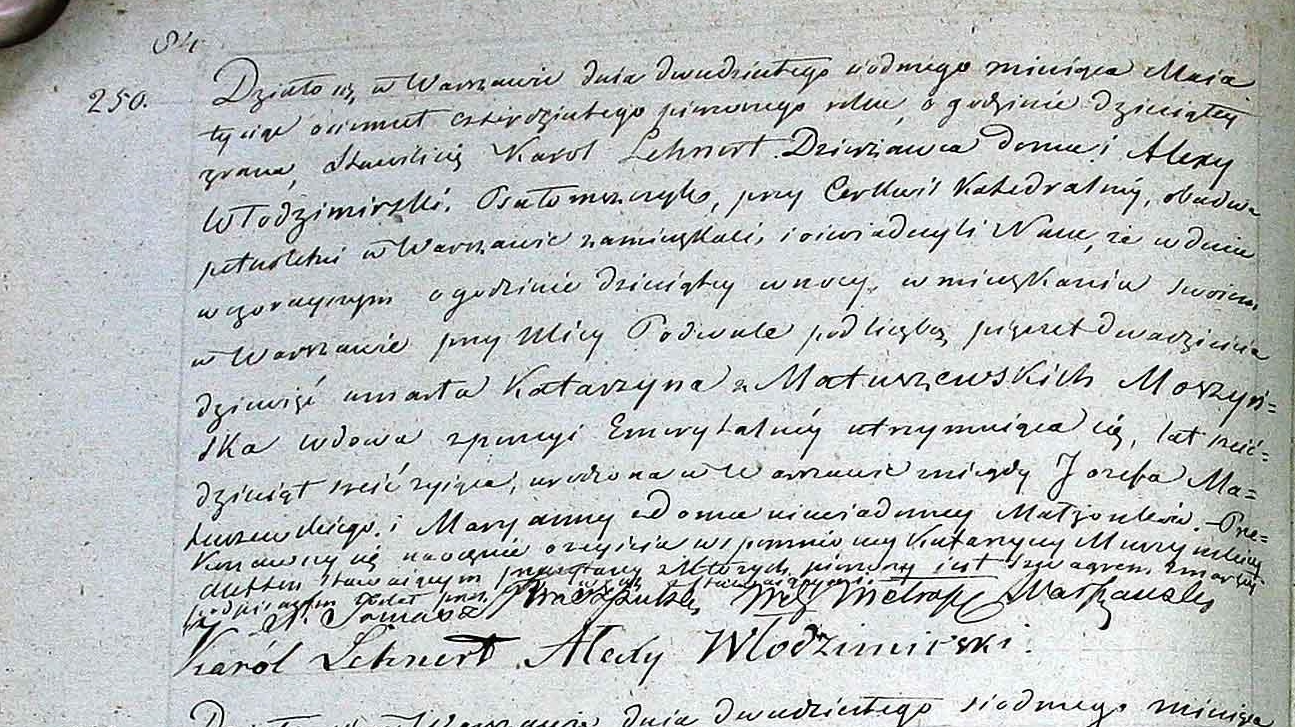 84
250.
Działo się w Warszawie dnia dwudziestego siódmego miesiąca Maia
tysiąc ośmset czterdziestego pierwszego roku, o godzinie dziesiątey
zrana, Stawili się Karol Lehnert Dzierżawca domu i Alexy
Włodzimirski. Psałomszczyk, przy Cerkwi Katedralnéy, obadwa
pełnoletni w Warszawie zamieszkali, i oświadczyli Nam, że w dniu
wczorayszym o godzinie dziesiątey w nocy, w mieszkaniu swoim
w Warszawie przy Ulicy Podwale pod liczbą pięćset dwadzieścia
dziewięć umarła Katarzyna z Matuszewskich Moszyń=
ska wdowa z pensyi Emerytalnéy utrzymuiąca się, lat sześć=
dziesiąt sześć żyiąca, urodzona w Warszawie między Jozefa Ma=
tuszewskiego i Maryanny z Domu niewiadomey Małżonków. – Prze=
konawszy się naocznie o zeyściu wspomnioney Katarzyny
Akt ten stawaiącym przeczytany z których pierwszy iest Szwagrem zmarłey
podpisanym został przez
X. Tomasz
Karól Lehnert. Alexy Włodzimirski.
Działo się w Warszawie dnia dwudziestego siodmego miesiąca